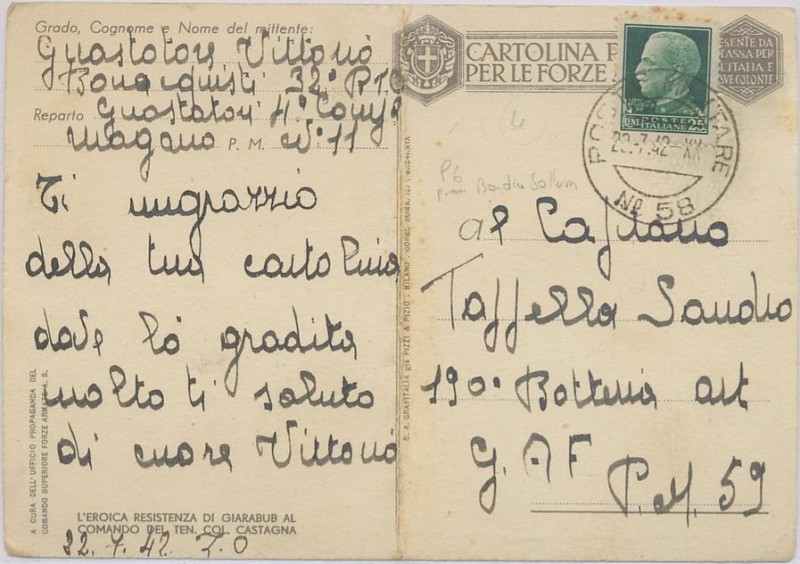 Grado, Cognome e Nome del mittente:
Guastatore Vittorio
Bonacquisti 32° BTG
Reparto Guastatori 4° Comp
Magano P. M. N° 11
Ti ringrazzio
della tua cartolina
dove lò gradita
molto ti saluto
di cuore Vittorio
A CURA DELL'UFFICIO PROPAGANDA DEL
COMANDO SUPERIORE FORZE ARMATE A. S.
L'EROICA RESISTENZA DI GIARABUB AL
COMANDO DEL TEN. COL. CASTAGNA
22.7.42. Z.O
S. A. GRAFITALIA già PIZZI & PIZIO - MILANO
CARTOLINA P
PER LE FORZE
ESENTE DA
TASSA PER
L'ITALIA E
COLONIE
POSTE
ITALIANE
CENT. 25
POS TARE
29.7.42 XX
No 58
P6
Bardia Sollum
al Capitano
Taffella Sandro
190° Batteria art
G. A F
P. M. 59